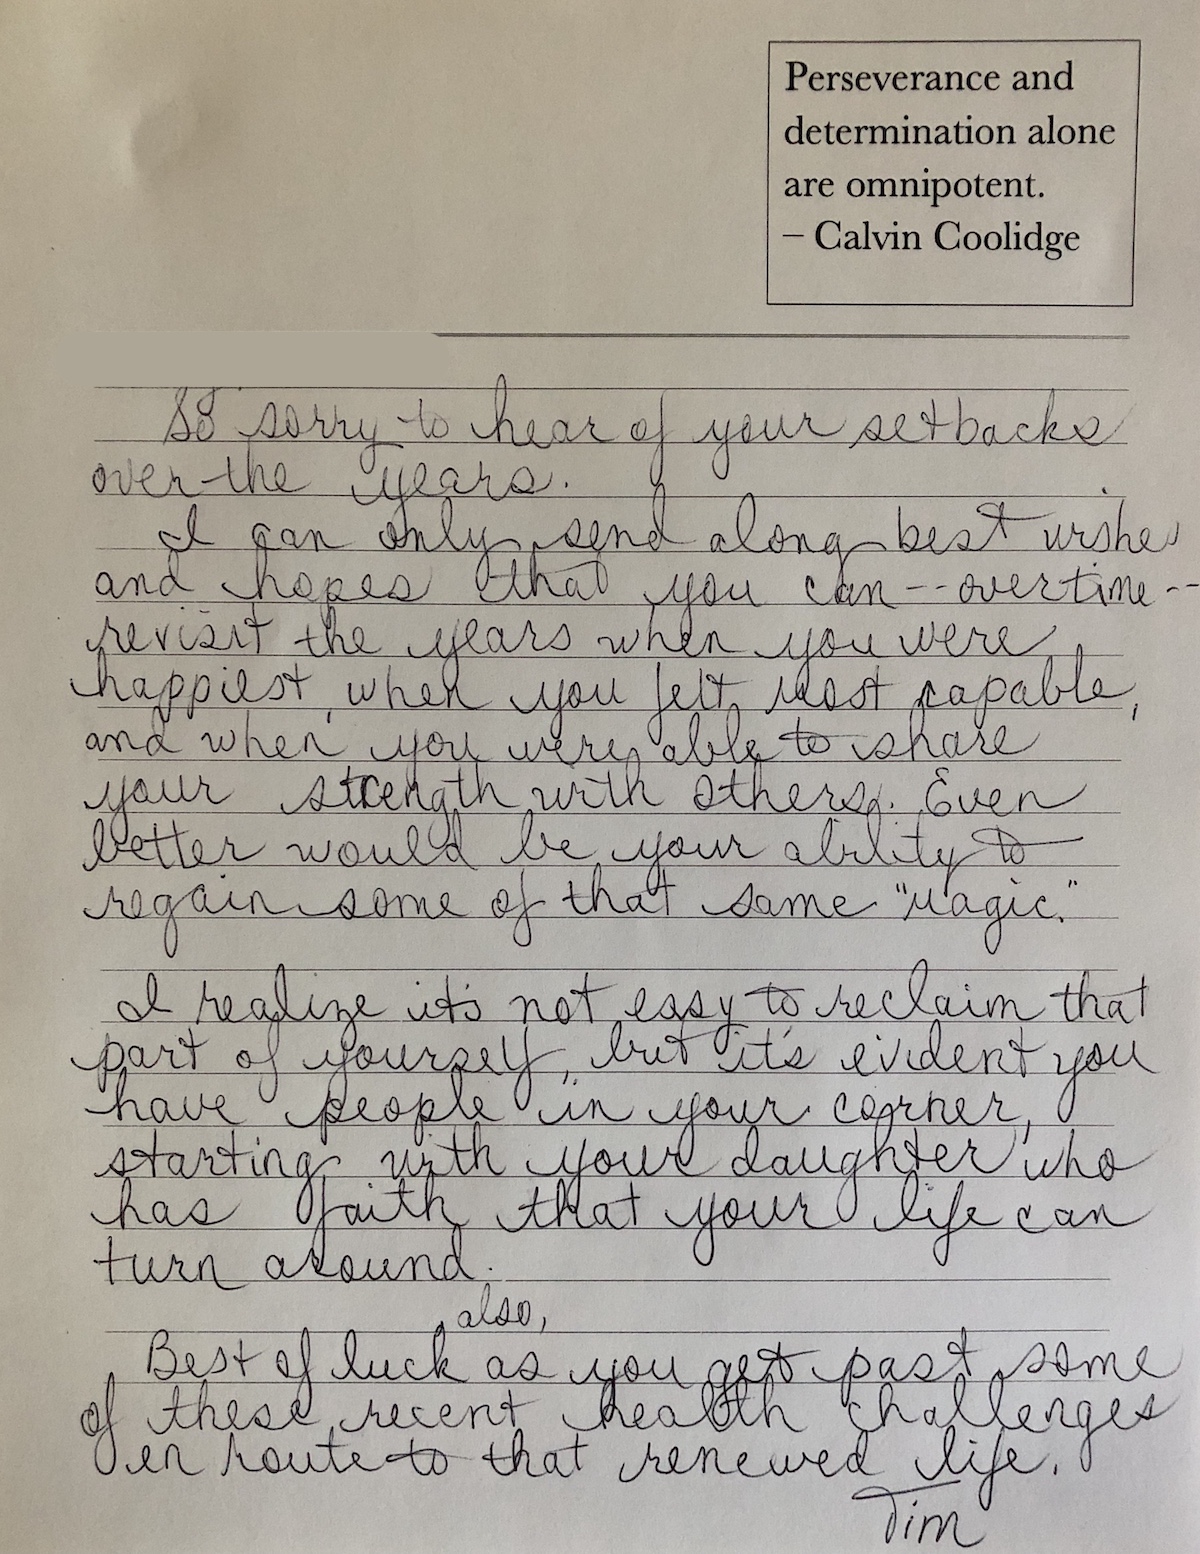 Perseverance and
determination alone
are omnipotent.
– Calvin Coolidge
So sorry to hear of your setbacks
over the years.
I can only send along best wishes
and hopes that you can -- overtime --
revisit the years when you were
happiest, when you felt most capable,
and when you were able to share
your strength with others. Even
better would be your ability to
regain some of that same "magic."
I realize it's not easy to reclaim that
part of yourself, but it's evident you
have people in your corner,
starting with your daughter who
has faith that your life can
turn around.
also,
Best of luck as you get past some
of these recent health challenges
en route to that renewed life.
Tim